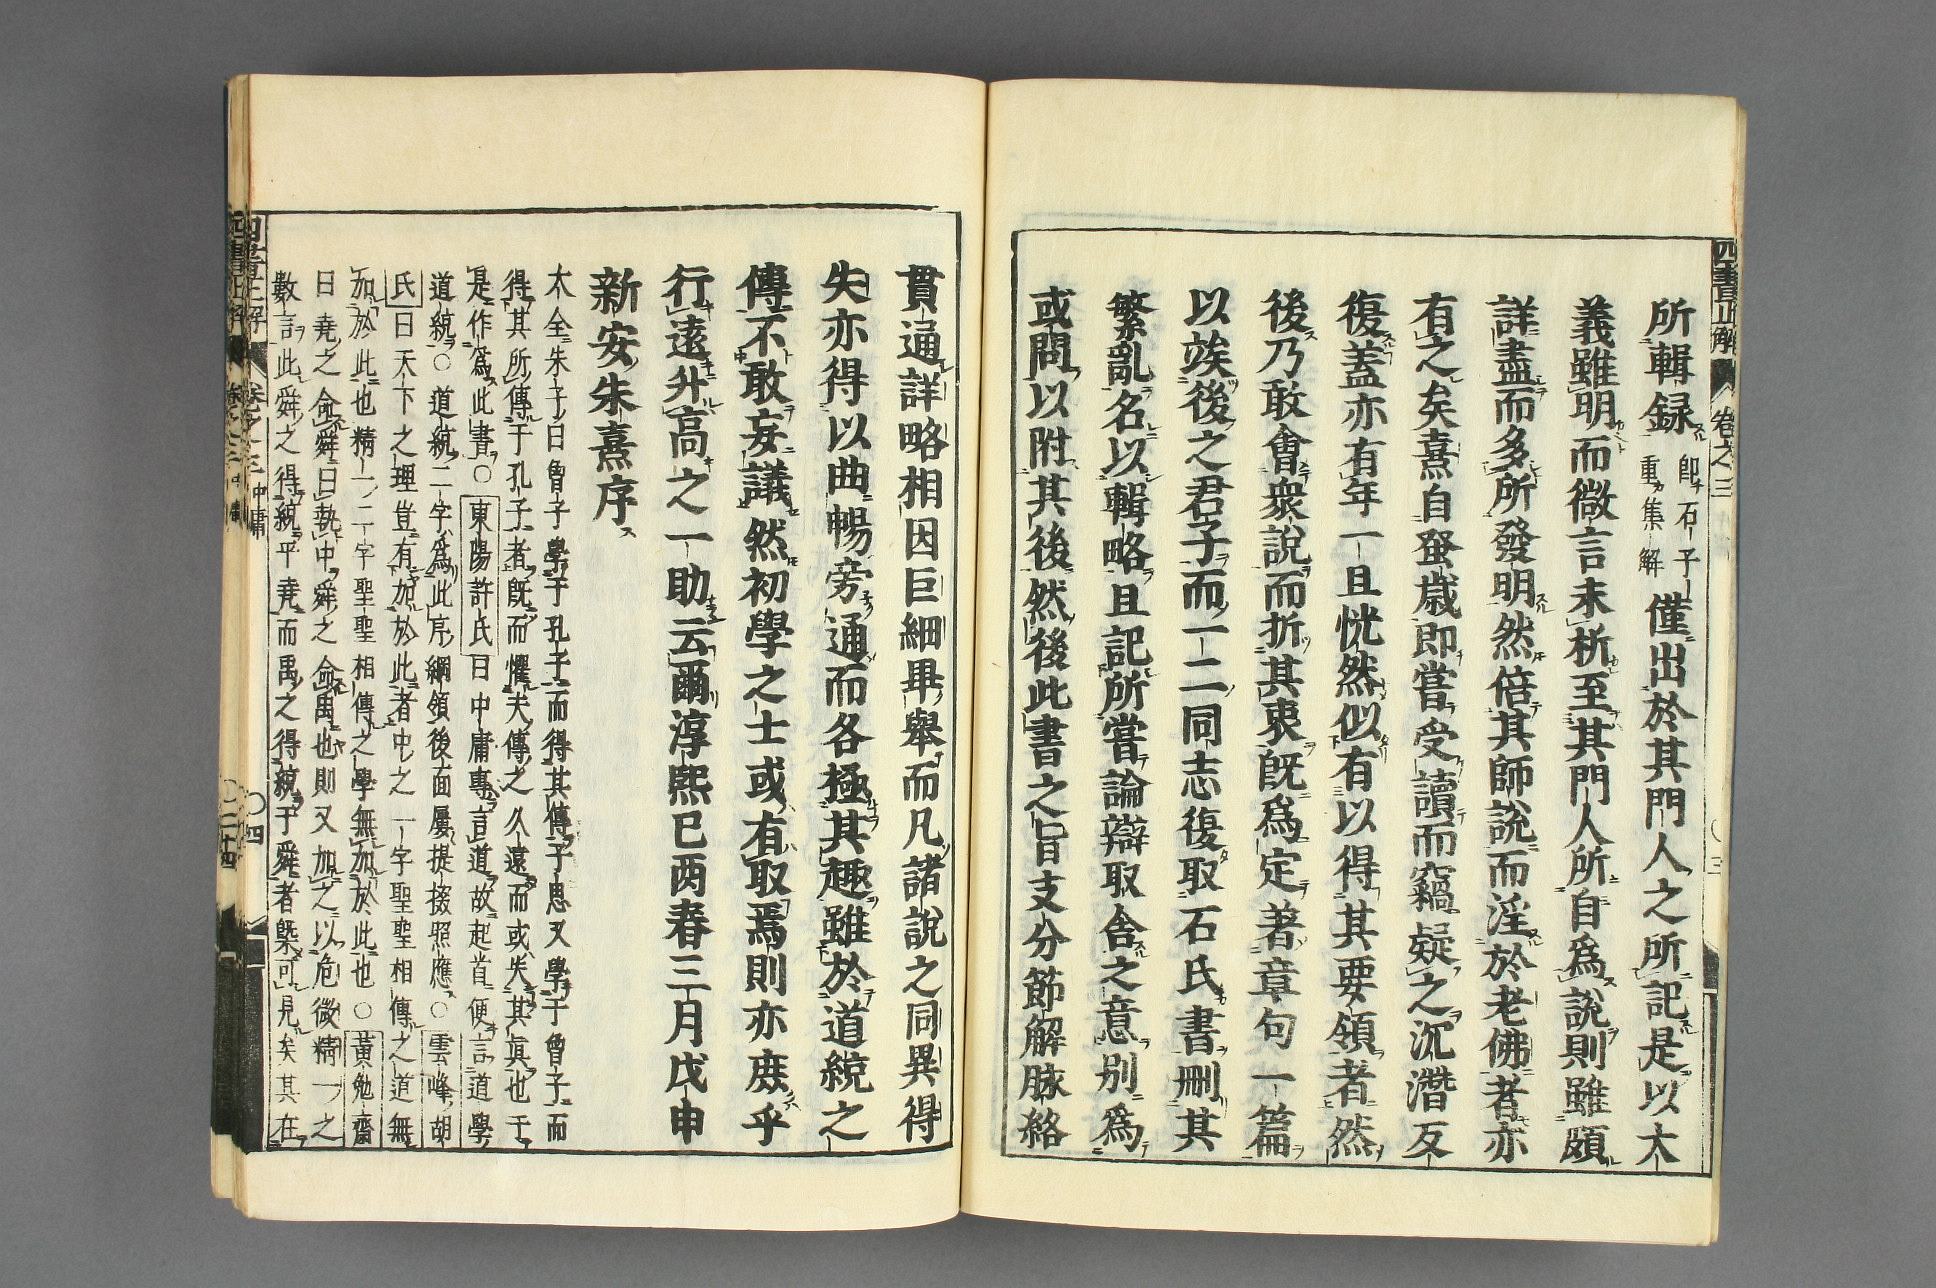 四書正解 卷之三 〇三
所輯録 即石子重集解 僅出於其門人之所記是以大
義雖明而微言未析至其門人所自爲說則雖頗
詳盡而多所發明然倍其師說而淫於老佛者亦
有之矣熹自蚤歳即嘗受讀而竊疑之沉濳反
復蓋亦有年一旦恍然似有以得其要領者然
後乃敢會衆說而折其衷既爲定著章句一篇
以竢後之君子而一二同志復取石氏書刪其
繁亂名以輯略且記所嘗論辯取舍之意別爲
或問以附其後然後此書之旨支分節解脉絡
貫通詳略相因巨細畢舉而凡諸說之同異得
失亦得以曲暢旁通而各極其趣雖於道統之
傳不敢妄議然初學之士或有取焉則亦庶乎
行遠升高之一助云爾淳熙己酉春三月戊申
新安朱熹序
大全朱子曰曾子學于孔子而得其傳子思又學于曾子而
得其所傳于孔子者既而懼夫傳之久遠而或失其眞也于
是作爲此書〇東陽許氏曰中庸專言道故起首便言道學
道統〇道統二字爲此序綱領後面屢提掇照應〇雲峰胡
氏曰天下之理豈有加於此者中之一字聖聖相傳之道無
加於此也精一二字聖聖相傳之學無加於此也〇黃勉齋
曰堯之命舜曰執中舜之命禹也則又加之以危微精一之
數言此舜之得統乎堯而禹之得統于舜者槩可見矣其在
四書正解 卷之三 中庸 〇四